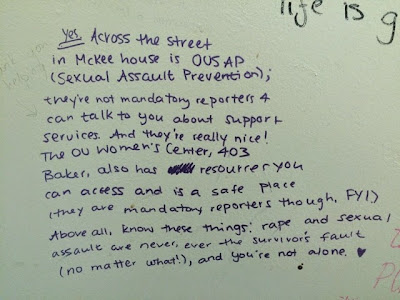 life is g
yes. Across the street
in McKee house is OUSAP
(Sexual Assault Prevention);
they're not mandatory reporters &
can talk to you about support
services. And they're really nice!
The OU Women's Center, 403
Baker, also has resources you
can access and is a safe place
(they are mandatory reporters though, FYI)
Above all, know these things: rape and sexual
assault are never, ever the survivor's fault
(no matter what!), and you're not alone. ♥